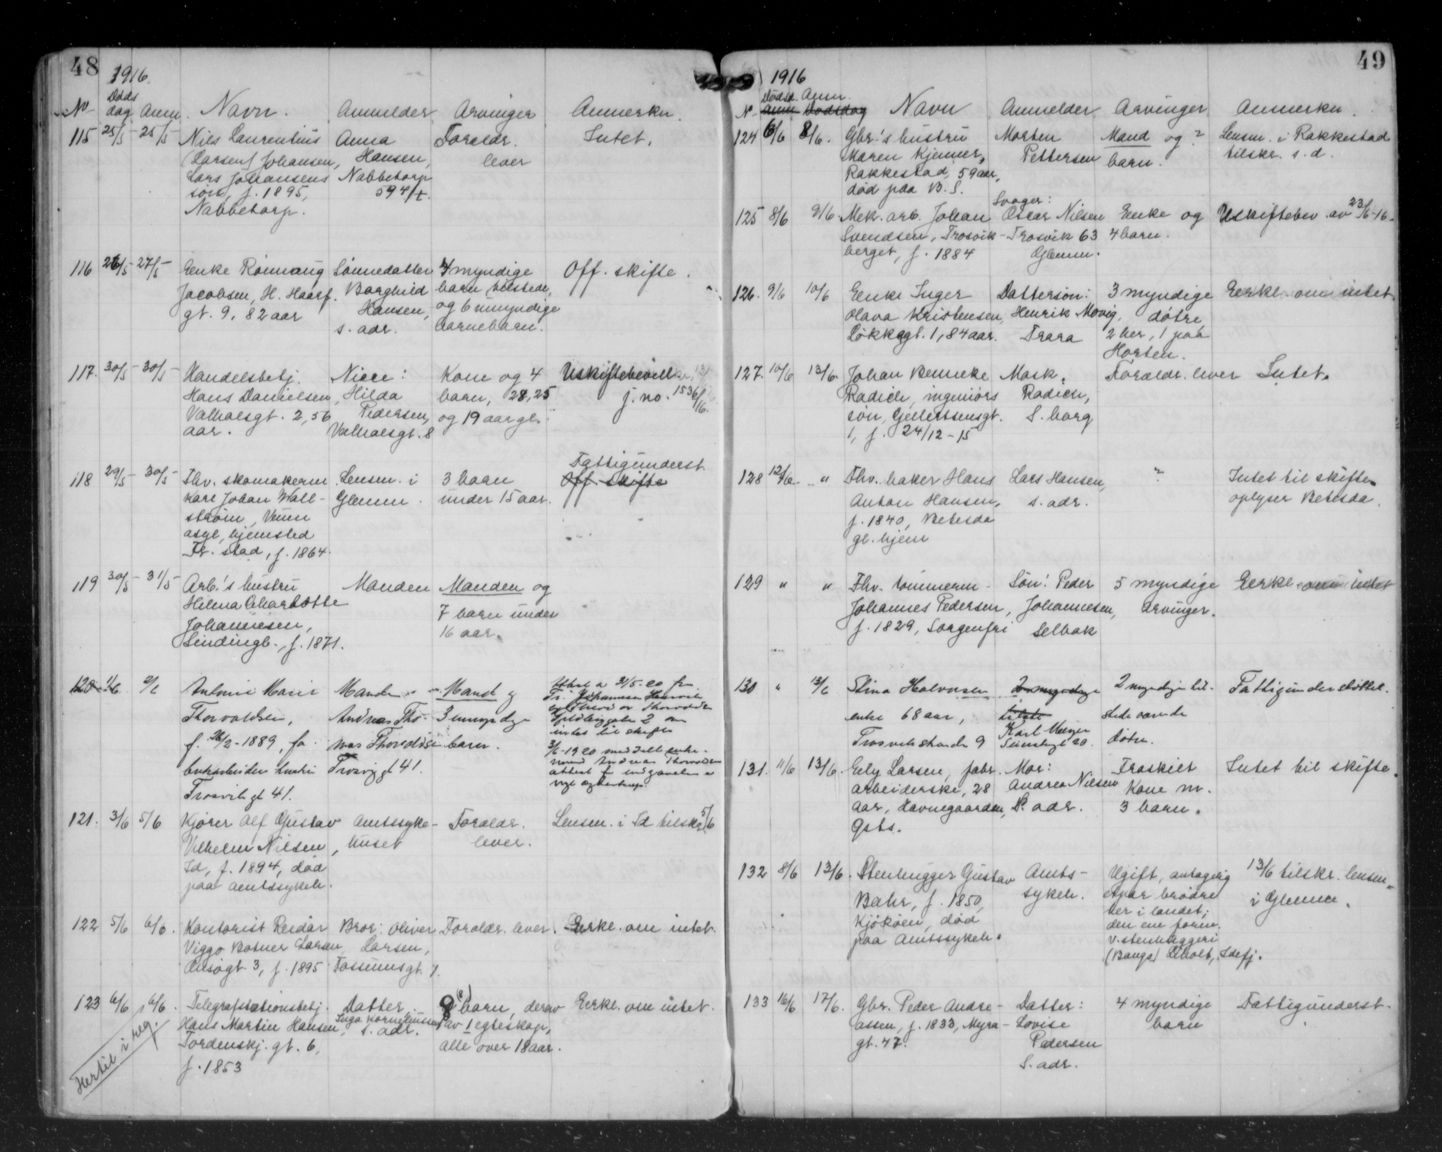 48
1916.
Døds
No dag Anm. Navn. Anmelder Arvinger Anmerkn.
115 25/5 - 25/5 - Nils Laurentius Anna Forældr. Intet.
(Larsen) Johansen, Hansen, lever
Lars Johansens Nabbetorp
søn, f. 1895, 594/4.
Nabbetorp.
116 26/5 - 27/5 - Enke Rønnaug Sønnedatter 4 myndige Off. skifte.
Jacobsen, H. Haarf. Borghild barn tilstede,
gt. 9, 82 aar Hansen, og 6 umyndige
s. adr. barnebarn.
117. 30/5 - 30/5 - Handelsbetj. Niece: Kone og 4 Uskiftebevill
Hans Danielsen, Hilda barn, 28, 25 j. no. 1536/16.
Valhalsgt. 2, 56 Pedersen, og 19 aar gl.
aar. Valhalsgt. 8
Fattigunderst.
118 29/5 - 30/5 - Fhv. skomakerm. Lensm. i 3 barn Off. Skifte
Karl Johan Wall- Glemm. under 15 aar.
strøm, Veum
asyl, hjemsted
Fr. stad, f. 1864.
119 30/5 - 31/5 - Arb.'s hustru Manden Manden og
Helena Charlotte 7 barn under
Johannesen, 16 aar.
Lindingb., f. 1871.
120 2/6 Antonie Marie Manden Mand og
Thorvaldsen, Andreas Tho- 3 umyndige
f. 26/2-1889, fa- mas Thorvaldsen barn.
brikarbeider hustru Trosvigt 41.
Trosvikgt 41.
121. 3/6 5/6 Kjører Alf Gustav Amtssyke- Forældr. Lensm. i Id tilskr. 5/6
Vilhelm Nilsen, huset lever.
Id, f. 1894, død
paa amtssykeh.
122 5/6 6/6. Kontorist Reidar Bror: Oliver Forældr. lever. Erkl. om intet.
Viggo Botner Larsen Larsen,
f. 1895 Fossumsgt 7.
123 6/6 6/6. Telegrafstationsbetj. Datter 8 barn, derav Erkl. om intet.
Hans Martin Hansen Inga Korneliussen av 1 egteskap,
Tordenskj. gt. 6, s. adr. alle over 18 aar.
f. 1853
Hertil i reg.
49
1916
Dødsd. Anm.
No Anm. Dødsdag Navn Anmelder Arvinger Anmerkn.
124 6/6 8/6. Gbr.'s hustru Morten Mand og ? Lensm. i Rakkestad
Maren Kjenner, Pettersen barn. tilskr. s. d.
Rakkestad, 59 aar,
død paa B. S.
Svoger:
125 8/6 9/6 Mek. arb. Johan Oscar Nilsen Enke og Uskiftebev. av 23/6-16.
Svendsen, Trosvik- Trosvik 63 4 barn.
berget, f. 1884 Glemm.
126. 9/6 10/6 Enke Inger Dattersøn: 3 myndige Erkl. om intet
Olava Kristensen, Henrik Movig, døtre
Løkkegt. 1, 84 aar. Trara 2 her, 1 paa
Horten.
127. 10/6 13/6. Johan Benneke Mark. Forældr. lever Intet.
Radich, ingeniørs Radich,
søn, Gjellertsensgt. S. borg
1, f. 24/12-15
128 12/6. " Fhv. baker Hans Lars Hansen, ? Intet til skifte
Anton Hansen, s. adr. oplyser Betesda.
f. 1840, Betesda
gl. hjem
129 " " Fhv. tømmerm. Søn: Peder 5 myndige Erkl. om intet
Johannes Pedersen, Johannesen, arvinger.
f. 1829, Sorgenfri Selbak
130 " 13/6 Stina Halvorsen 2 myndige 2 myndige til- Fattigunderstøttet.
enke 68 aar, stede værende
Trosvikstrande 9 Karl Meyer døtre.
131. 11/6 13/6. Elly Larsen, fabr. Mor: Fraskilt Intet til skifte.
arbeiderske, 28 Andrea Nilsen Kone m.
aar, Havnegaarden, S. adr. 3 barn.
Gsts.
132 8/6 13/6. Stenhugger Gustav Amts- Ugift, antagelig 13/6 tilskr. lensm.
Bahr, f. 1850, sykeh. et par brødre i Glemm.
Kjøkøen, død her i landet;
paa amtssykeh. den ene form.
v. stenhuggeri
(Bangs) Liholt, Idefj.
133 16/6 17/6. Gbr. Peder Andre- Datter: 4 myndige Fattigunderst.
assen, f. 1833, Myra- Lovise barn
gt. 47. Pedersen
S. adr.